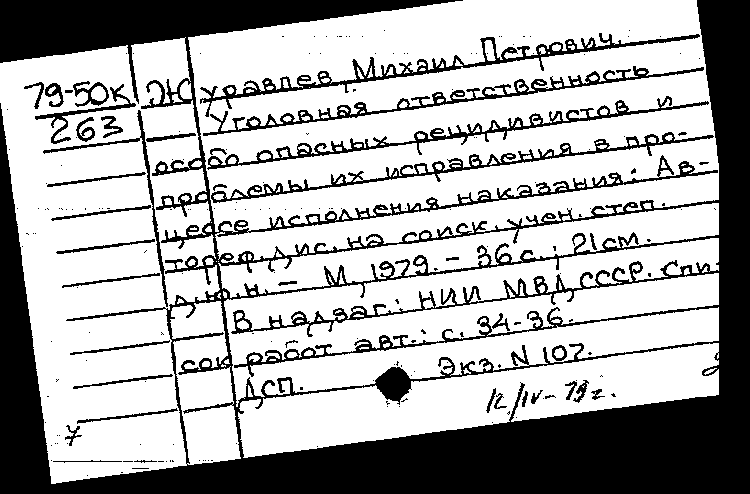 79-50к Журавлев, Михаил Петрович.
263 Уголовная ответственность
особо опасных рецидивистов и
проблемы их исправления в про-
цессе исполнения наказания: Ав-
тореф. дис. на соиск. учен. степ.
д.ю.н. — М., 1979. - 36 с.; 21 см.
В надзаг.: НИИ МВД СССР. Спи-
сок работ авт.: с. 34-36.
ДСП. Экз. N 107.
12/IV-79 г.